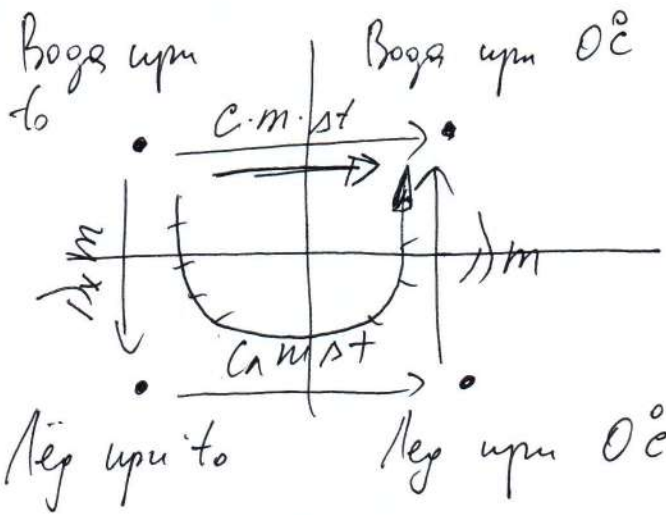 Вода при t₀
Вода при 0°C
c·m·Δt
λₓ m
λ m
cл m Δt
Лёд при t₀
Лед при 0°C